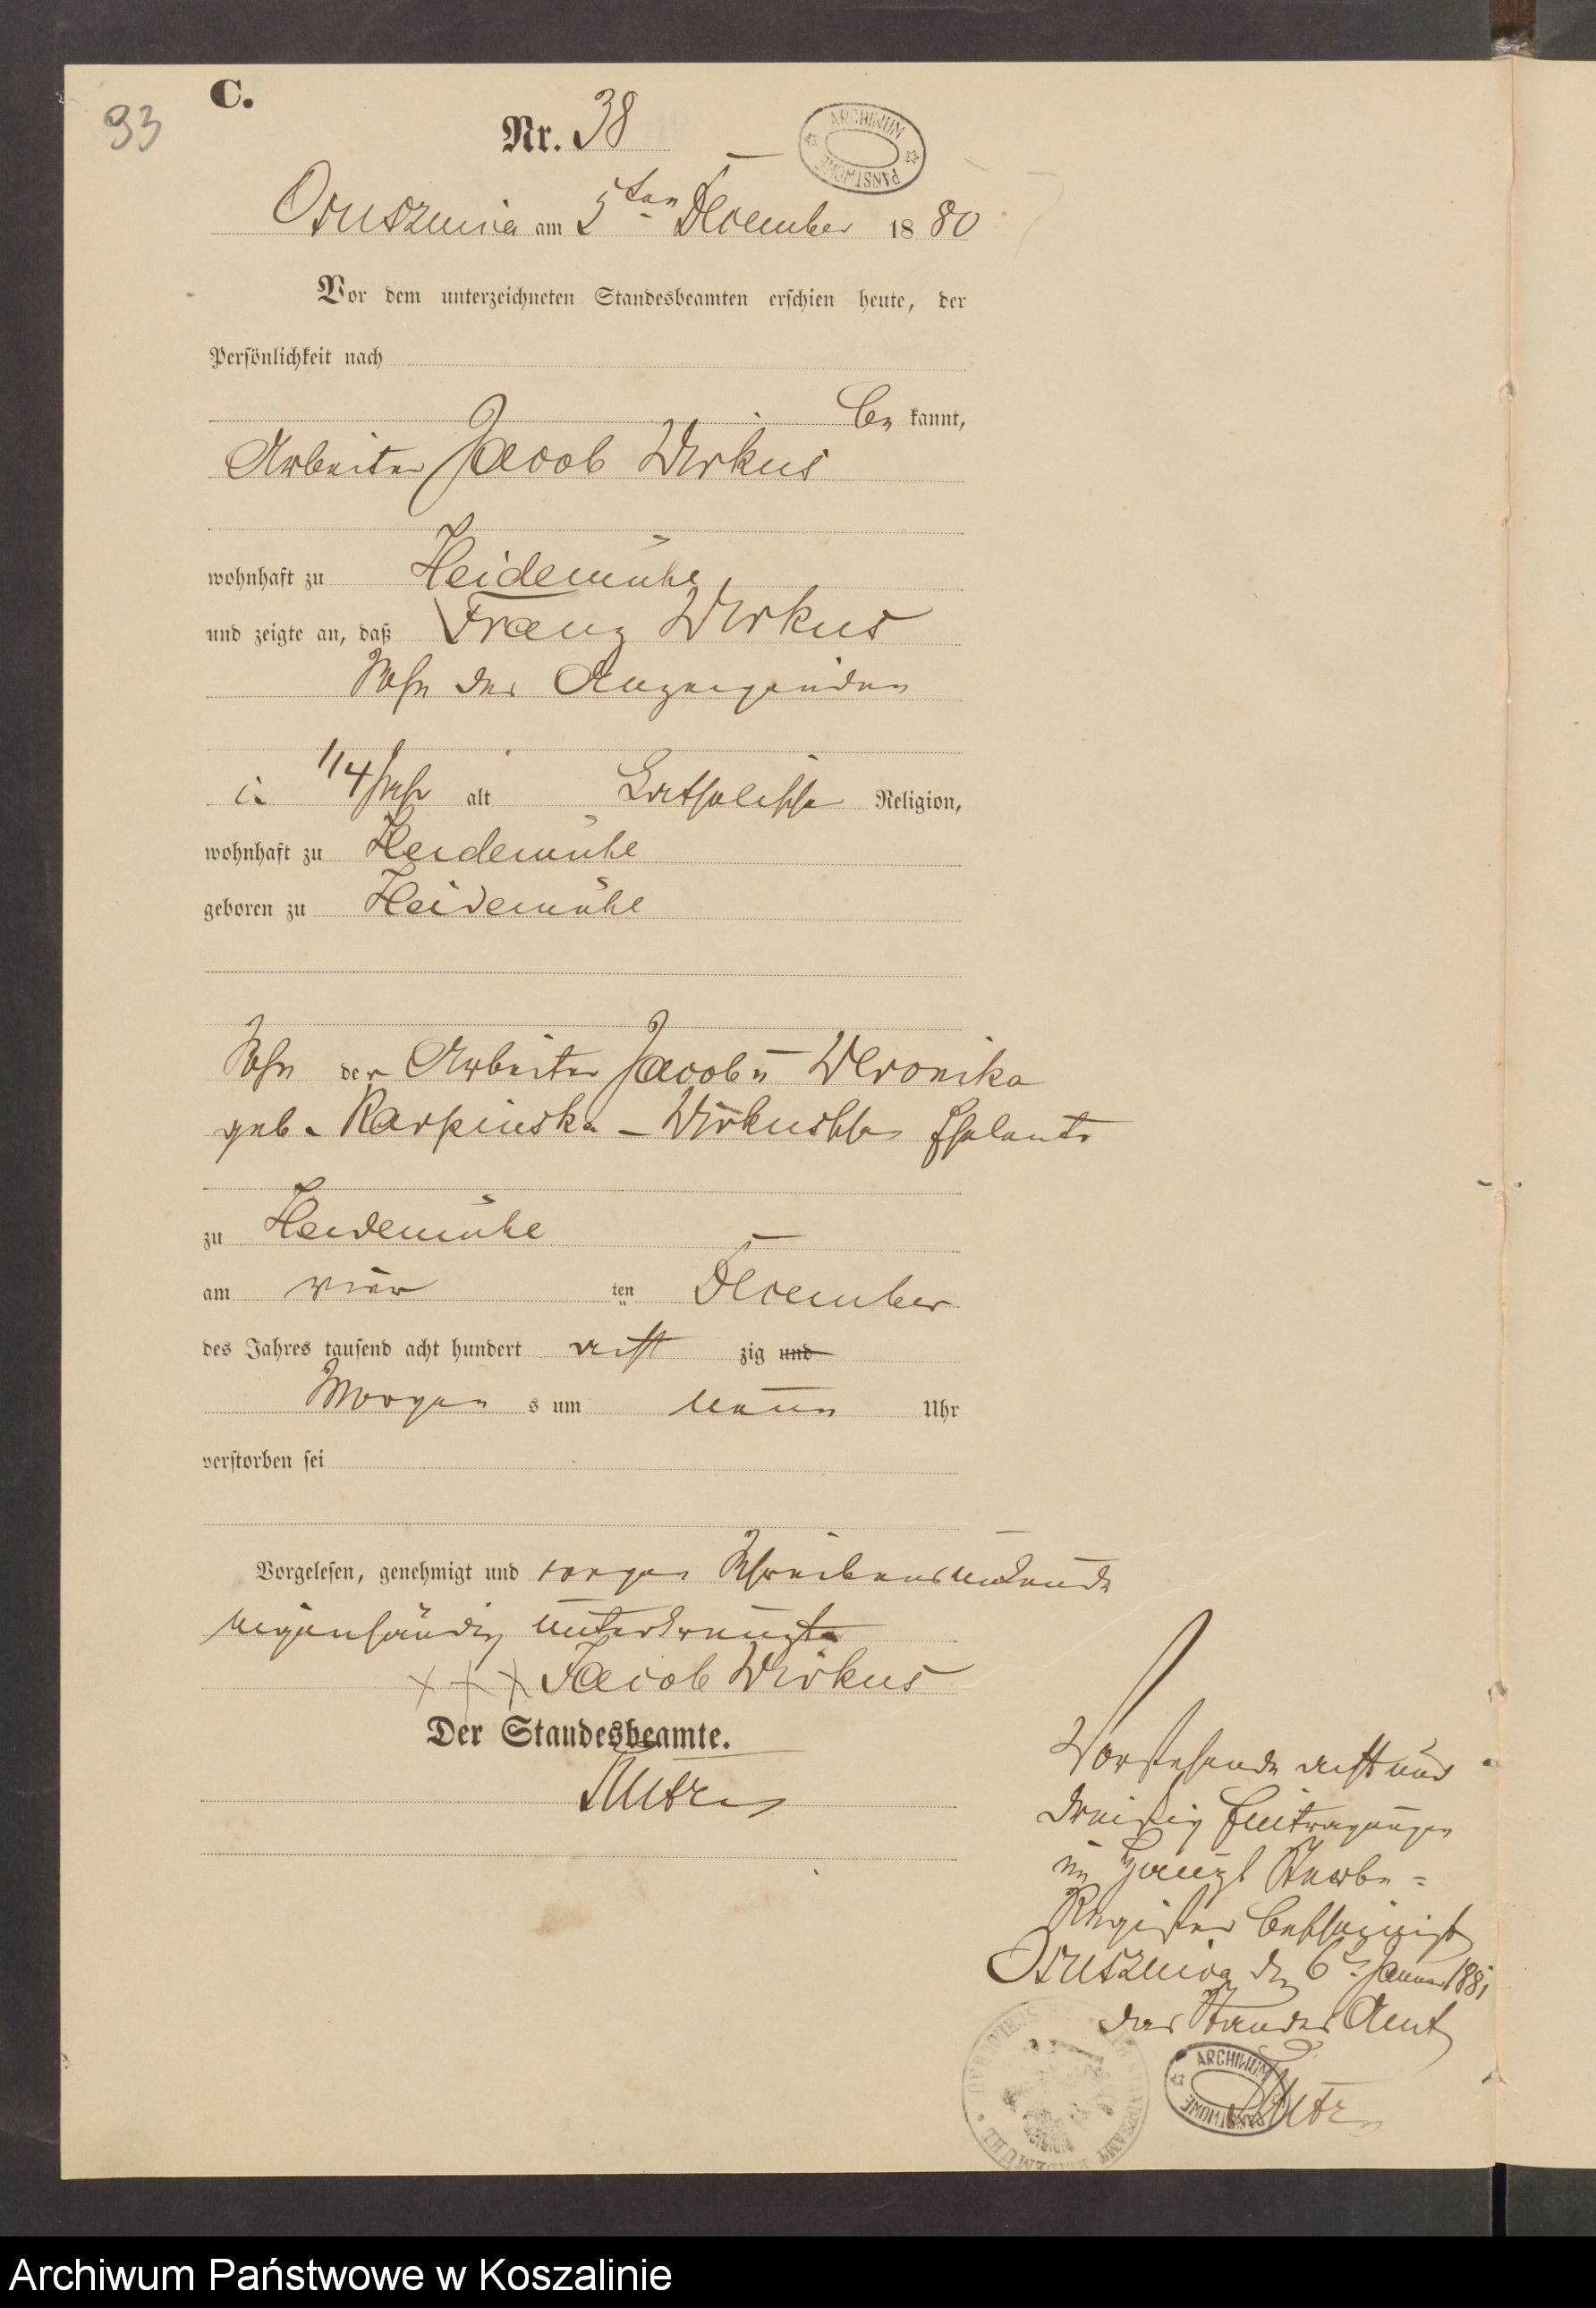 93
C.
Nr. 38
ARCHIWUM PAŃSTWOWE
Osuszniza am 5ten December 1880
Vor dem unterzeichneten Standesbeamten erschien heute, der
Persönlichkeit nach
be kannt,
Arbeiter Jacob Wirkus
wohnhaft zu Heidemühl
und zeigte an, daß Franz Wirkus
Sohn des Anzeigenden
1/4 Jahr alt Katholische Religion,
wohnhaft zu Heidemühl
geboren zu Heidemühl
Sohn der Arbeiter Jacob u Veronika
geb. Karpinska - Wirkusschen Eheleute
zu Heidemühl
am vier ten December
des Jahres tausend acht hundert acht zig und
Morgen s um neun Uhr
verstorben sei
Vorgelesen, genehmigt und wegen Schreibensunkunde
eigenhändig unterkreuzt
+ + + Jacob Wirkus
Der Standesbeamte.
Vorstehende acht und
dreißig Eintragungen
im Haupt Sterbe=
Register bescheinigt
Osuszniza den 6t Januar 1881
Das Standes Amt
ARCHIWUM PAŃSTWOWE
Archiwum Państwowe w Koszalinie